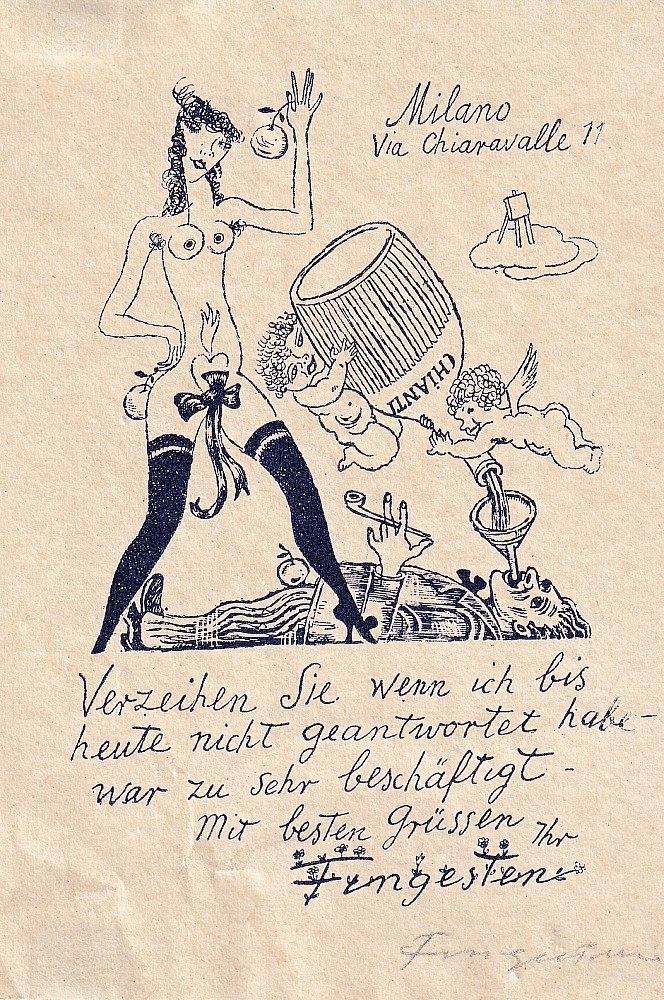 Milano
Via Chiaravalle 11
CHIANTI
Verzeihen Sie wenn ich bis
heute nicht geantwortet habe-
war zu sehr beschäftigt-
Mit besten Grüssen Ihr
Fingesten
Fingesten